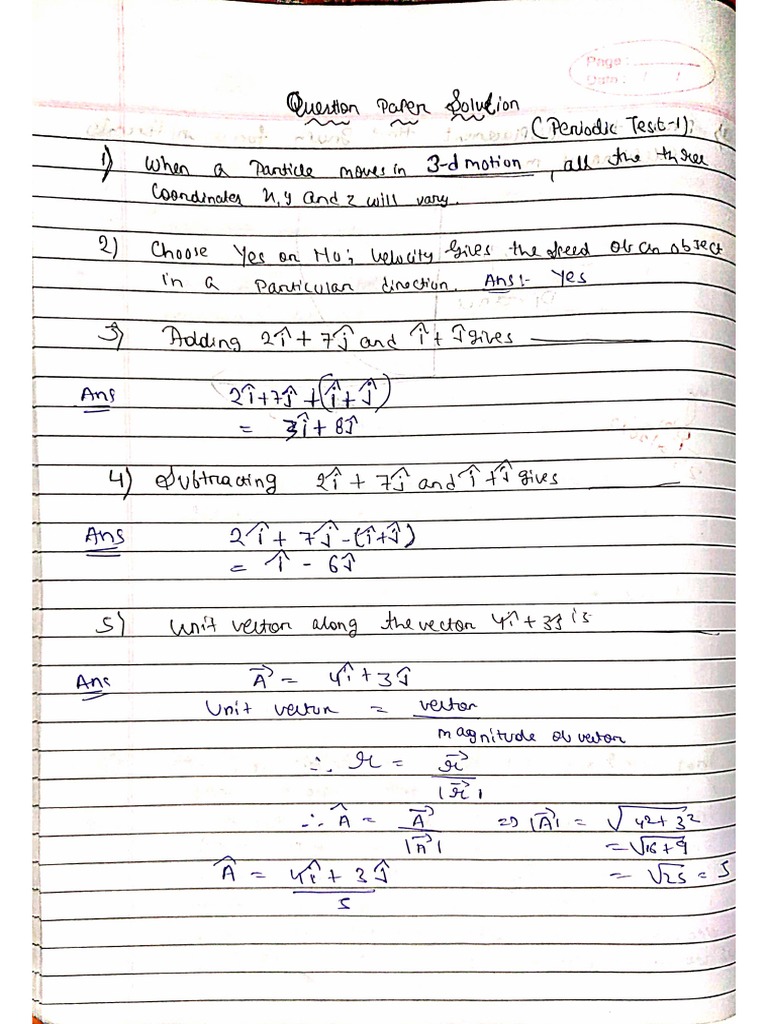 Page:
Date: / /
Question Paper Solution
(Periodic Test-1)
1) When a Particle moves in 3-d motion, all the three
Coordinates x, y and z will vary.
2) Choose Yes or No; Velocity Gives the speed of an object
in a Particular direction. Ans:- Yes
3) Adding 2î + 7ĵ and î + ĵ gives ______
Ans 2î+7ĵ +(î+ĵ)
= 3î + 8ĵ
4) Subtracting 2î + 7ĵ and î + ĵ gives ______
Ans 2î + 7ĵ -(î+ĵ)
= î - 6ĵ
5) Unit vector along the vector 4î + 3ĵ is ______
Ans A⃗ = 4î + 3ĵ
Unit vector = vector
magnitude of vector
∴ r = r⃗
|r⃗|
∴ Â = A⃗ / |A⃗| ⇒ |A⃗| = √4²+3²
= √16+9
 = 4î + 3ĵ / 5 = √25 = 5